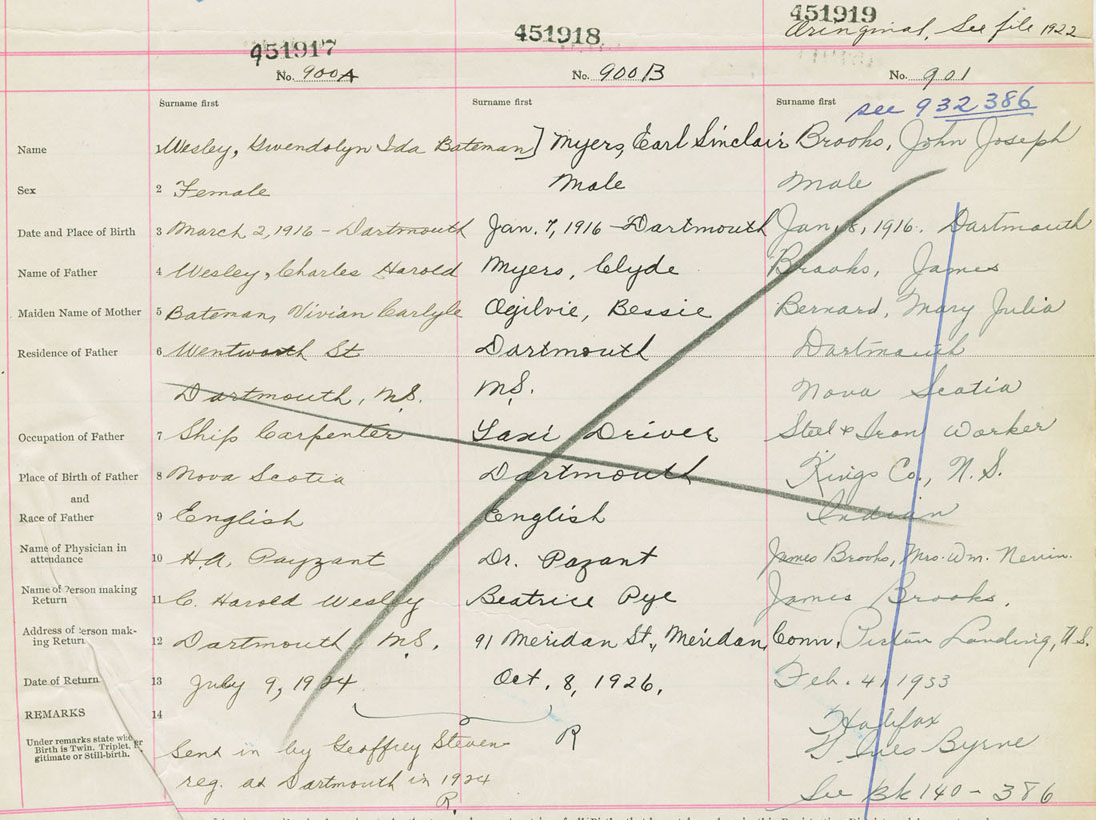 451917
451918
451919
Oringinal, See file 1922
No. 900A
No. 900B
No. 901
Surname first
Surname first
Surname first
see 932 386
Name
Wesley, Gwendolyn Ida Bateman]
Myers, Earl Sinclair
Brooks, John Joseph
Sex
2 Female
Male
Male
Date and Place of Birth
3 March 2, 1916 - Dartmouth
Jan. 7, 1916 - Dartmouth
Jan. 8, 1916. Dartmouth
Name of Father
4 Wesley, Charles Harold
Myers, Clyde
Brooks, James
Maiden Name of Mother
5 Bateman, Vivian Carlyle
Ogilvie, Bessie
Bernard, Mary Julia
Residence of Father
6 Wentworth St
Dartmouth
Dartmouth
Dartmouth, N.S.
N.S.
Nova Scotia
Occupation of Father
7 Ship Carpenter
Taxi Driver
Steel & Iron Worker
Place of Birth of Father
8 Nova Scotia
Dartmouth
Kings Co., N.S.
and
Race of Father
9 English
English
Indian
Name of Physician in
attendance
10 H.A. Payzant
Dr. Pazant
James Brooks, Mrs. Wm. Nevin.
Name of Person making
Return
11 C. Harold Wesley
Beatrice Pye
James Brooks.
Address of Person mak-
ing Return
12 Dartmouth, N.S.
91 Meridan St., Meridan, Conn.
Pictou Landing, N.S.
Date of Return
13 July 9, 1924
Oct. 8, 1926.
Feb. 4, 1933
REMARKS
14
Halifax
Under remarks state whether
Birth is Twin, Triplet,
gitimate or Still-birth.
Sent in by Geoffrey Stevens
R
Byrne
reg. at Dartmouth in 1924
R.
See Bk 140 - 386